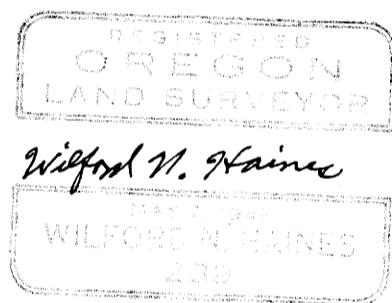 REGISTERED
OREGON
LAND SURVEYOR
Wilford N. Haines
WILFORD N. HAINES